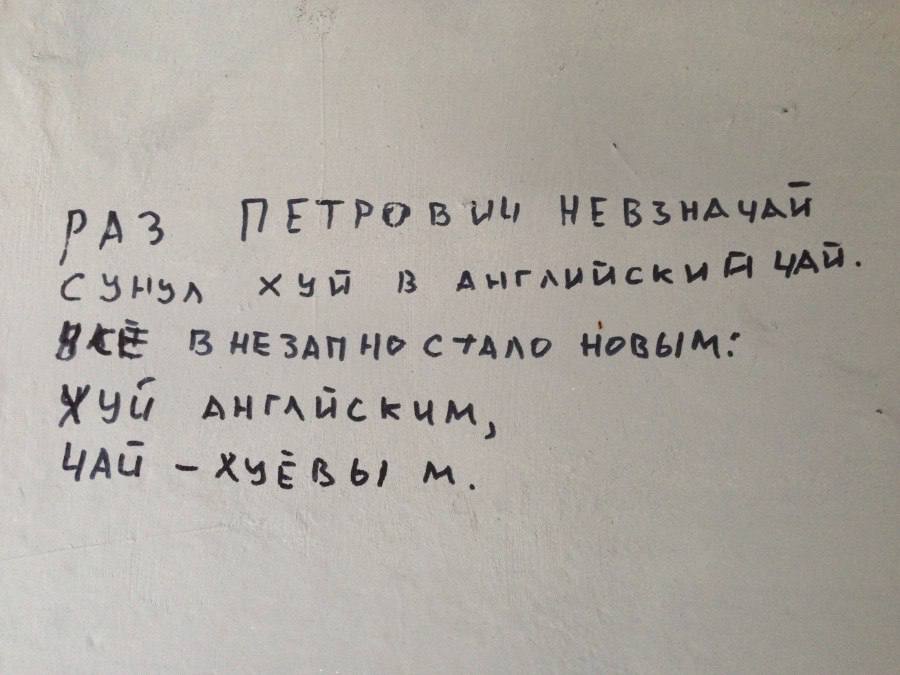 РАЗ ПЕТРОВИЧ НЕВЗНАЧАЙ
СУНУЛ ХУЙ В АНГЛИЙСКИЙ ЧАЙ.
ВСЁ ВНЕЗАПНО СТАЛО НОВЫМ:
ХУЙ АНГЛЙСКИМ,
ЧАЙ – ХУЁВЫМ.